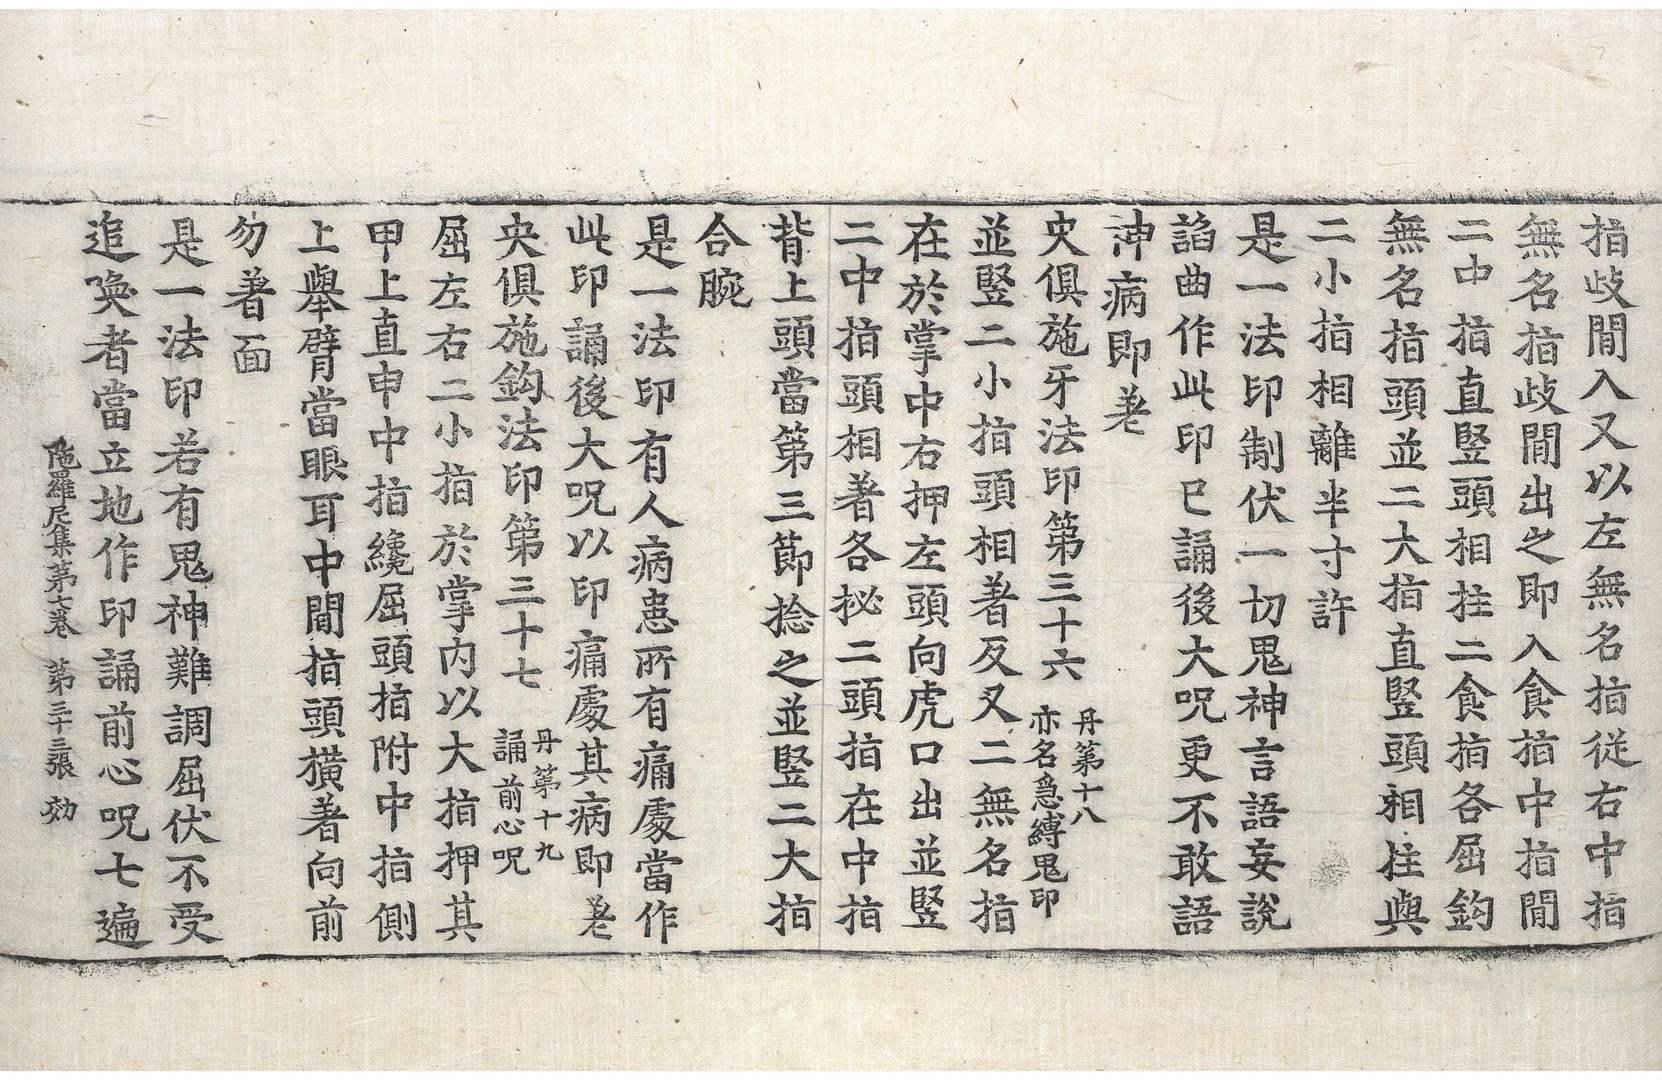 指歧間入又以左無名指従右中指
無名指歧間出之即入食指中指間
二中指直竪頭相拄二食指各屈鈎
無名指頭並二大指直竪頭相拄與
二小指相離半寸許
是一法印制伏一切鬼神言語妄說
謟曲作此印已誦後大呪更不敢語
神病即差
央俱施牙法印第三十六 丹第十八
亦名為縛鬼印
並竪二小指頭相著反叉二無名指
在於掌中右押左頭向虎口出並竪
二中指頭相著各柲二頭指在中指
背上頭當第三節捻之並竪二大指
合腕
是一法印有人病患所有痛處當作
此印誦後大呪以印痛處其病即差
央俱施鈎法印第三十七 丹第十九
誦前心呪
屈左右二小指於掌内以大指押其
甲上直申中指纔屈頭指附中指側
上舉臂當眼耳中間指頭撗著向前
勿著面
是一法印若有鬼神難調屈伏不受
追喚者當立地作印誦前心呪七遍
陁羅尼集第七卷 第三十三張 効